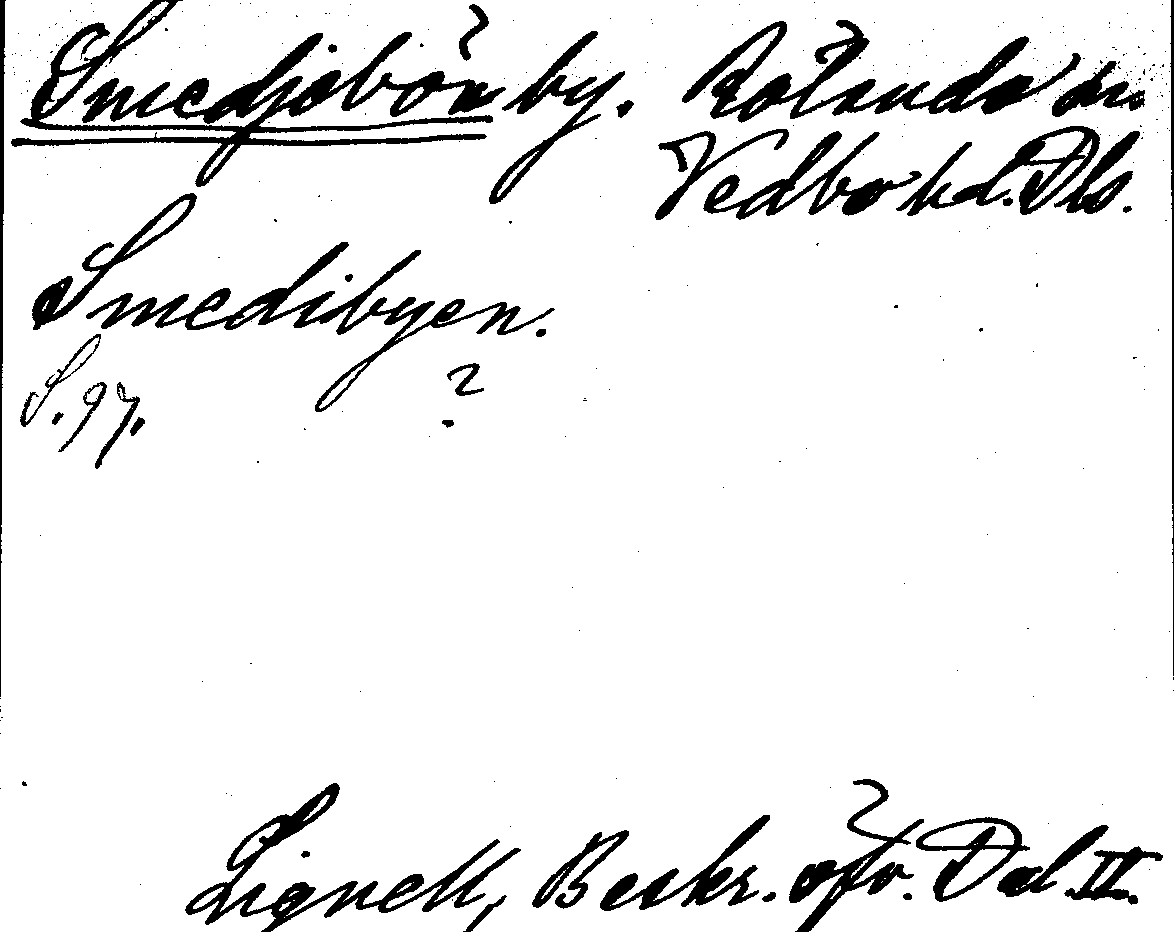 Smedjebön by. Rölanda sn
Vedbo hd. Dls.
Smedibyen.
S. 97. ?
Lignell, Beskr. öfv. Dal. II.